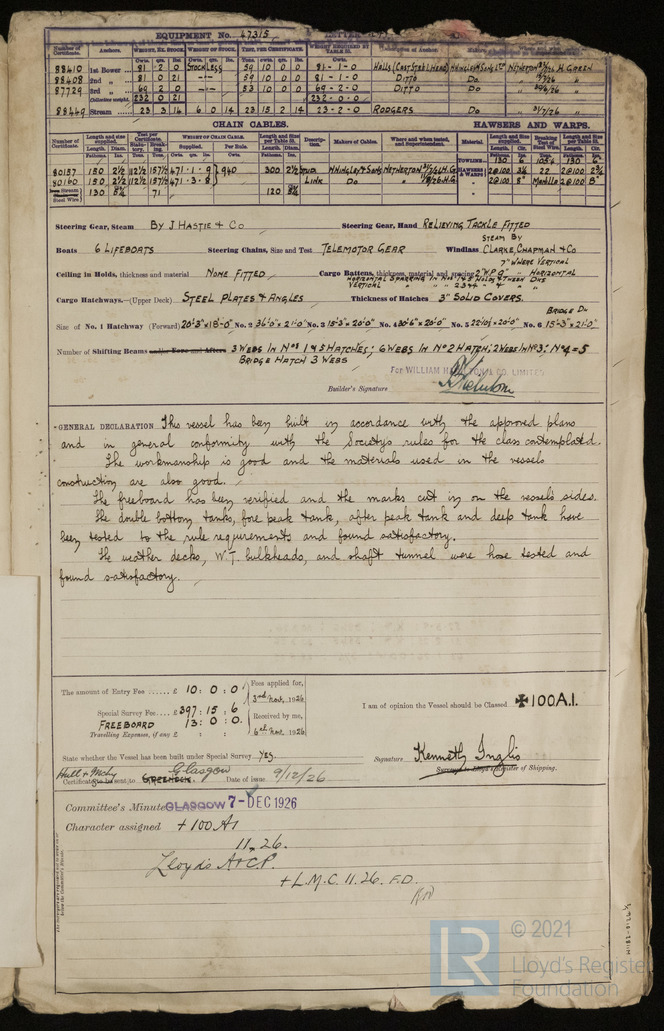 EQUIPMENT No. 47315 LETTER
Number of Certificate. Anchors. WEIGHT, EX. STOCK. WEIGHT OF STOCK. TEST, PER CERTIFICATE. WEIGHT REQUIRED BY TABLE 30. Description of Anchor.
Cwts. qrs. lbs. Cwts. qrs. lbs. Tons. cwts. qrs. lbs. Cwts. qrs. lbs.
88410 1st Bower 81 2 0 STOCKLESS 59 10 0 0 81-1-0 HALLS (CAST STEEL HEAD) N.HINGLEY & SONS LTD NETHERTON H. GREEN
88408 2nd „ 81 0 21 59 10 0 0 81-1-0 DITTO DO
87729 3rd „ 69 2 0 53 10 0 0 69-2-0 DITTO DO
Collective weight 232 0 21 232-0-0
88449 Stream 23 3 14 6 0 14 23 15 2 14 23-2-0 RODGERS DO 31/7/26
CHAIN CABLES. HAWSERS AND WARPS.
Number of Certificate. Length and size supplied. Test per Certificate. WEIGHT OF CHAIN CABLE. Length and size per Table 30. Description. Makers of Cables. Where and when tested, and Superintendent. Material. Length and size supplied. Breaking Test of Steel Wire. Length and size per Table 30.
Fathoms. Diam. Supplied. Per Rule. Fathoms. Diam. Fathoms. Cir. Tons. Fathoms. Cir.
TOWLINE 130 6 130 6"
80157 150 2½ 112½ 157½ 471-1-9 940 300 2½ STUD N HINGLEY & SONS NETHERTON H.G. HAWSERS & WARPS 2@100 22 2@100 2¾
80160 150 2½ 112½ 157½ 471-3-8 LINK DO H.G. 2@100 8" MANILLA 2@100 8"
130 71 120
Steering Gear, Steam BY J. HASTIE & CO Steering Gear, Hand RELIEVING TACKLE FITTED
STEAM BY
Boats 6 LIFEBOATS Steering Chains, Size and Test TELEMOTOR GEAR Windlass CLARKE, CHAPMAN & CO
Ceiling in Holds, thickness and material NONE FITTED Cargo Battens, thickness, material and spacing 2" W.P. 9" HORIZONTAL
7" WHERE VERTICAL
Cargo Hatchways.—(Upper Deck) STEEL PLATES & ANGLES Thickness of Hatches 3" SOLID COVERS.
BRIDGE DK
Size of No. 1 Hatchway (Forward) 20'-3"x18'-0" No. 2 36'-0"x21'-0" No. 3 15'-3"x20'-0" No. 4 30'-6"x20'-0" No. 5 22'-10½"x20'-0" No. 6 15'-3"x21'-0"
Number of Shifting Beams and/or Fore and Afters 3 WEBS IN NOS 1 & 5 HATCHES; 6 WEBS IN NO 2 HATCH; 2 WEBS IN NO 3; NO 4 = 5
BRIDGE HATCH 3 WEBS
FOR WILLIAM HAMILTON & CO. LIMITED
Builder's Signature
GENERAL DECLARATION This vessel has been built in accordance with the approved plans
and in general conformity with the Society's rules for the class contemplated.
The workmanship is good and the materials used in the vessels
construction are also good.
The freeboard has been verified and the marks cut in on the vessels sides.
The double bottom tanks, fore peak tank, after peak tank and deep tank have
been tested to the rule requirements and found satisfactory.
The weather decks, W.T. bulkheads, and shaft tunnel were hose tested and
found satisfactory.
The amount of Entry Fee £ 10 : 0 : 0 Fees applied for,
3rd Nov. 1926
Special Survey Fee £397 : 15 : 6
FREEBOARD 13 : 0 : 0. Received by me,
Travelling Expenses, if any £ : : 6th Nov. 1926
I am of opinion the Vessel should be Classed ✠100A.1.
State whether the Vessel has been built under Special Survey Yes.
Signature Kenneth Inglis
Surveyor to Lloyd's Register of Shipping.
Hull & Mchy Glasgow
Certificate to be sent to GREENOCK. Date of issue 9/12/26
Committee's Minute GLASGOW 7-DEC 1926
Character assigned +100A1
11.26.
Lloyd's A&CP.
+L.M.C. 11.26. F.D.
© 2021
LR Lloyd's Register
Foundation